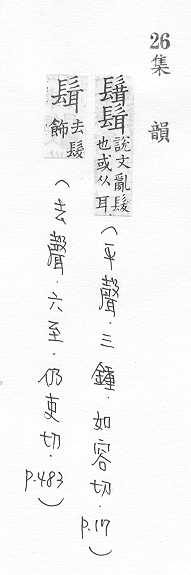 26
集韻
髶說文亂髮也或从耳(平聲·三鍾·如容切·p.17)
髶去髮飾(去聲·六至·仍吏切·p.483)